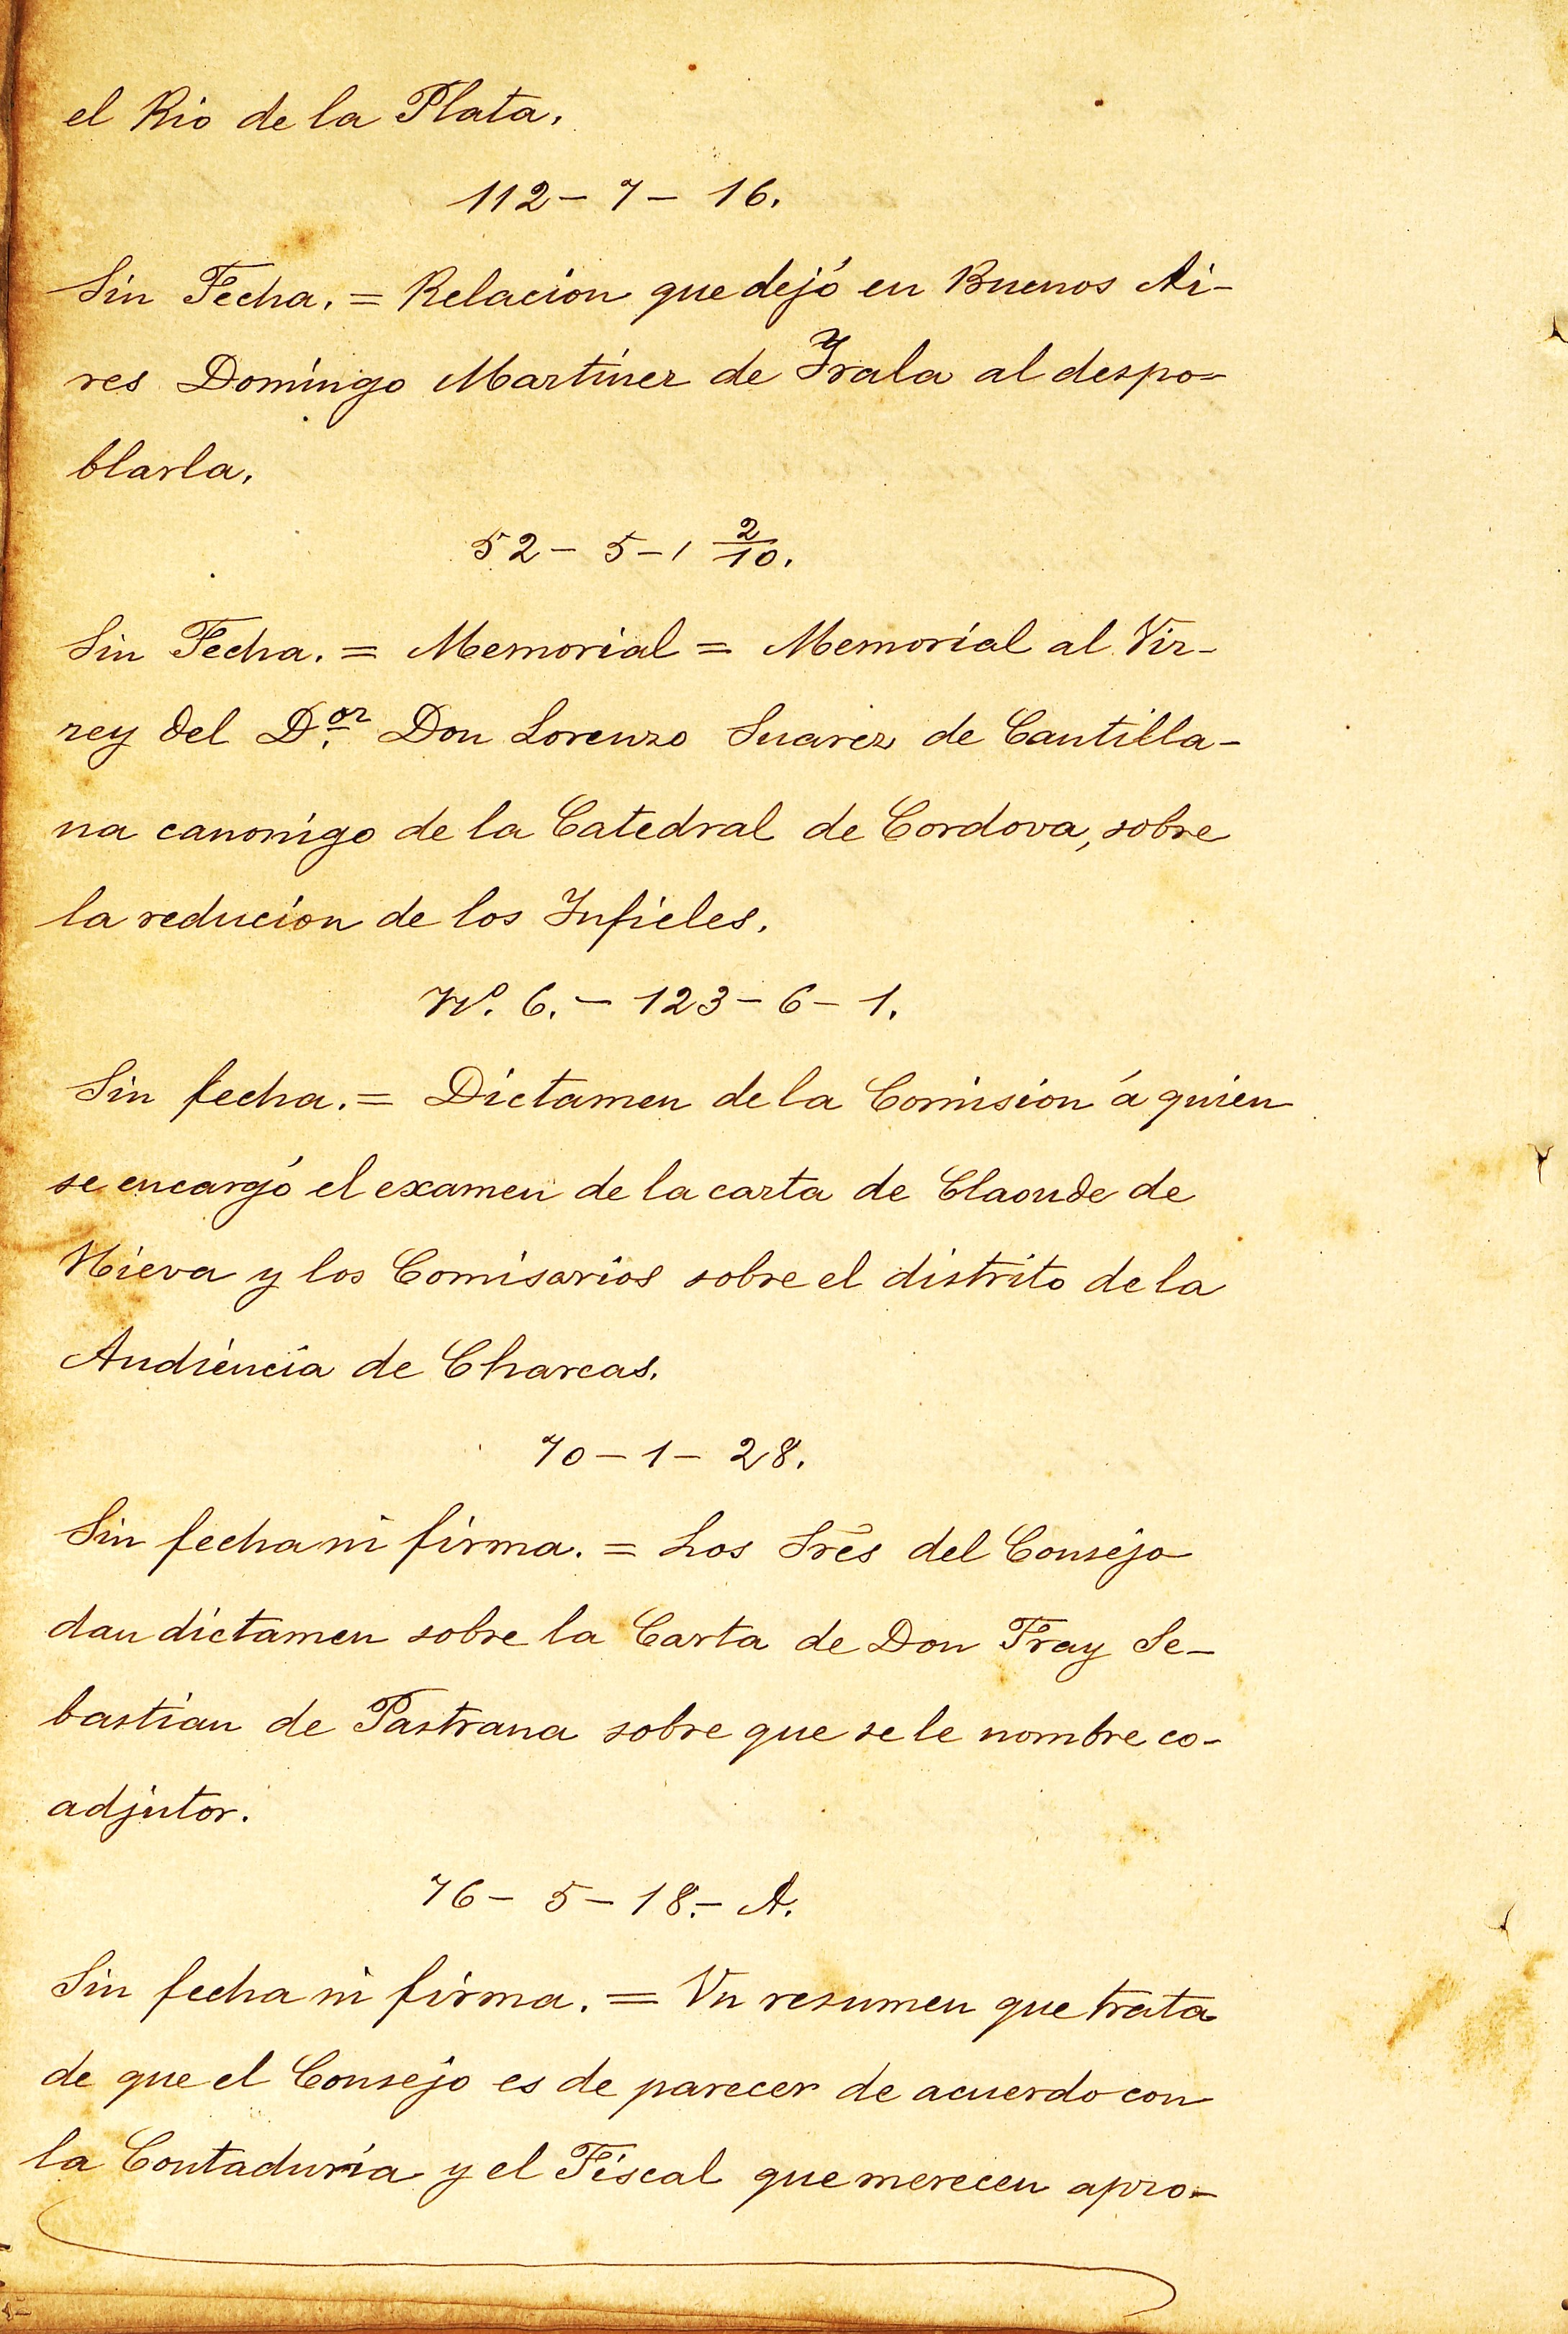 el Rio de la Plata.
112 - 7 - 16.
Sin Fecha. = Relacion que dejó en Buenos Ai-
res Domingo Martinez de Yrala al despo=
blarla.
52 - 5 - 1 2/10.
Sin Fecha. = Memorial = Memorial al Vir-
rey del D.or Don Lorenzo Suarez de Cantilla-
na canonigo de la Catedral de Cordova, sobre
la reducion de los Ynfieles.
Nº. 6. - 123 - 6 - 1.
Sin fecha. = Dictamen de la Comision á quien
se encargó el examen de la carta de Claonde de
Nieva y los Comisarios sobre el distrito de la
Audiencia de Charcas.
70 - 1 - 28.
Sin fecha ni firma. = Los Sres del Consejo
dan dictamen sobre la Carta de Don Fray Se-
bastian de Pastrana sobre que se le nombre co-
adjutor.
76 - 5 - 18. - A.
Sin fecha ni firma. = Un resumen que trata
de que el Consejo es de parecer de acuerdo con
la Contaduria y el Fiscal que merecen apro-